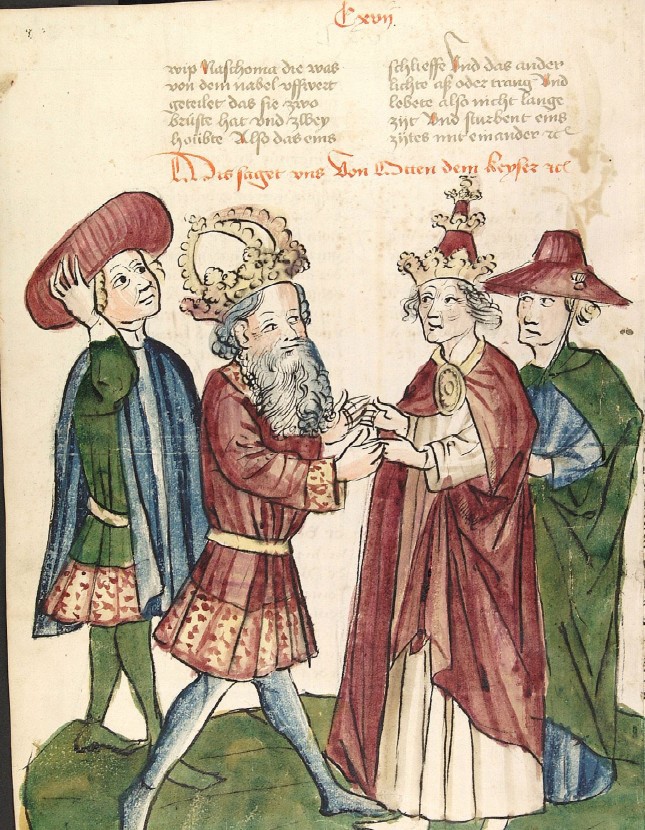 Cxvij.
wip die was
von dem nabel vffwert
geteilet das sie zwo
brüste hat vnd zwey
houbte Also das eins
schlieffe Vnd das ander
lichte aß oder trang Vnd
lebete also nicht lange
zijt Vnd sturbent eins
zijtes mit einander ꝛc
Dis saget vns Von Otten dem keyser ꝛc